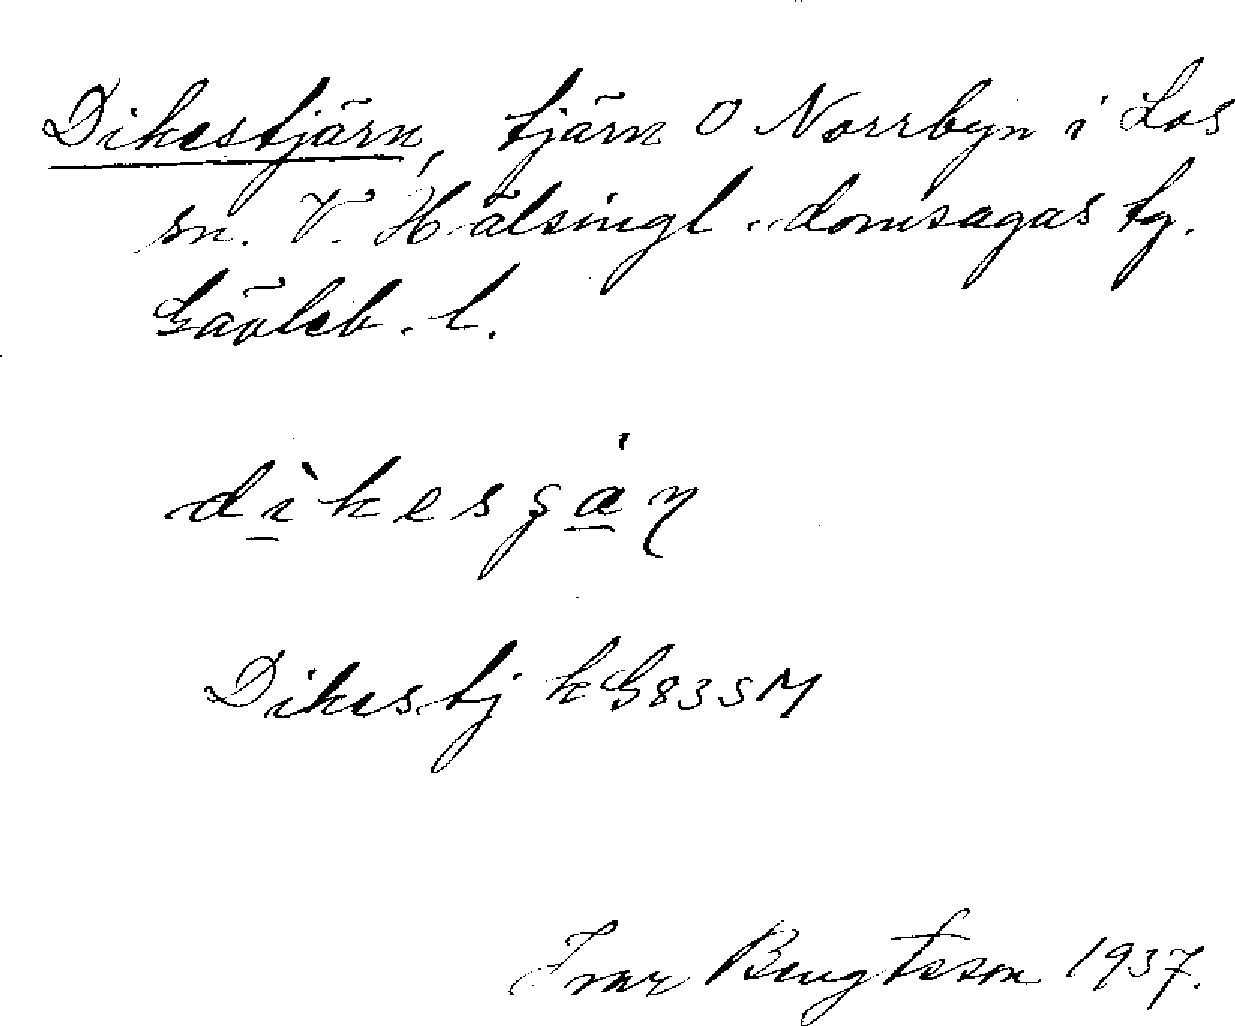 Dikestjärn, tjärn O Norrbyn i Los
sn. V. Hälsingl. domsagas tg.
Gävleb. l.
dìkesşáŋ
Dikestj kG 83 SM
Ivar Bengtsson 1937.